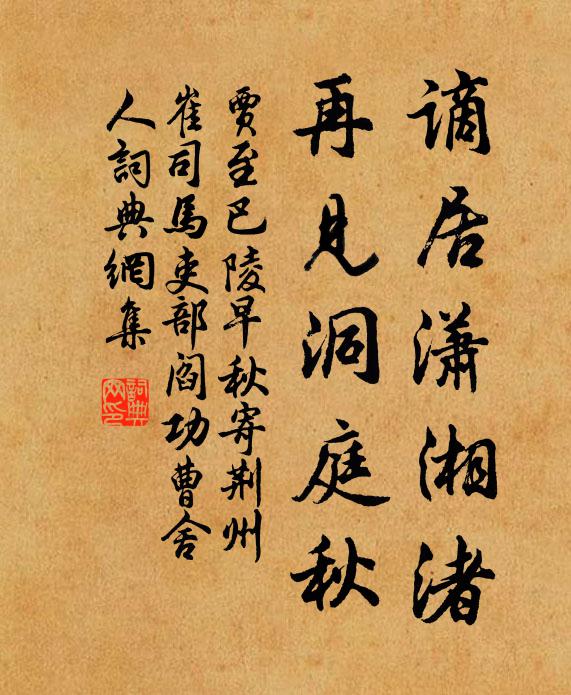 谪居潇湘渚
再见洞庭秋
贾至巴陵早秋寄荆州
崔司馬吏部阎功曹舍
人詞典網集
詞典
网印